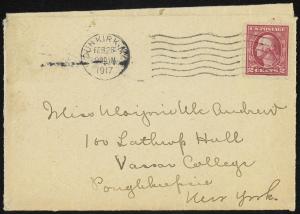 DUNKIRK, N.Y.
FEB 26
1917
U.S. POSTAGE
2 CENTS 2
Miss Marjorie Mc Andrew
100 Lathrop Hall
Vassar College
Poughkeepsie
New York.